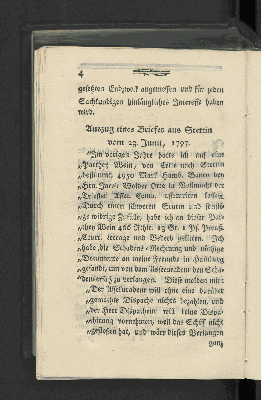 4
gesetzten Endzweck angemessen und für jeden
Sachkundigen hinlängliches Interesse haben
wird.
Auszug eines Briefes aus Stettin
vom 23. Junii, 1797.
„Im vorigen Jahre hatte ich auf eine
„Parthey Wein, von Cette nach Stettin
„bestimmt, 4950 Mark Hamb. Banco bey
„Hrn. Jacob Wolder Otte in Vollmacht der
„Triester Assec. Comp. assecuriren lassen.
„Durch einen schweren Sturm und sonsti-
„ge widrige Zufälle, habe ich an dieser Par-
„they Wein 466 Rthlr. 13 Gr. 1 Pf. Preuß.
„Court. Leccage und Verderb gelitten. Ich
„habe die Schadens-Rechnung und nöthige
„Documente an meine Freunde in Hamburg
„gesandt, um von dem Assecuradeur den Scha-
„densersatz zu verlangen. Diese melden mir:
„Der Assekuradeur will ohne eine darüber
„gemachte Dispache nichts bezahlen, und
„der Herr Dispacheur will keine Dispa-
„chirung vornehmen, weil das Schiff nicht
„gestoßen hat, und wäre dieses Verlangen
ganz